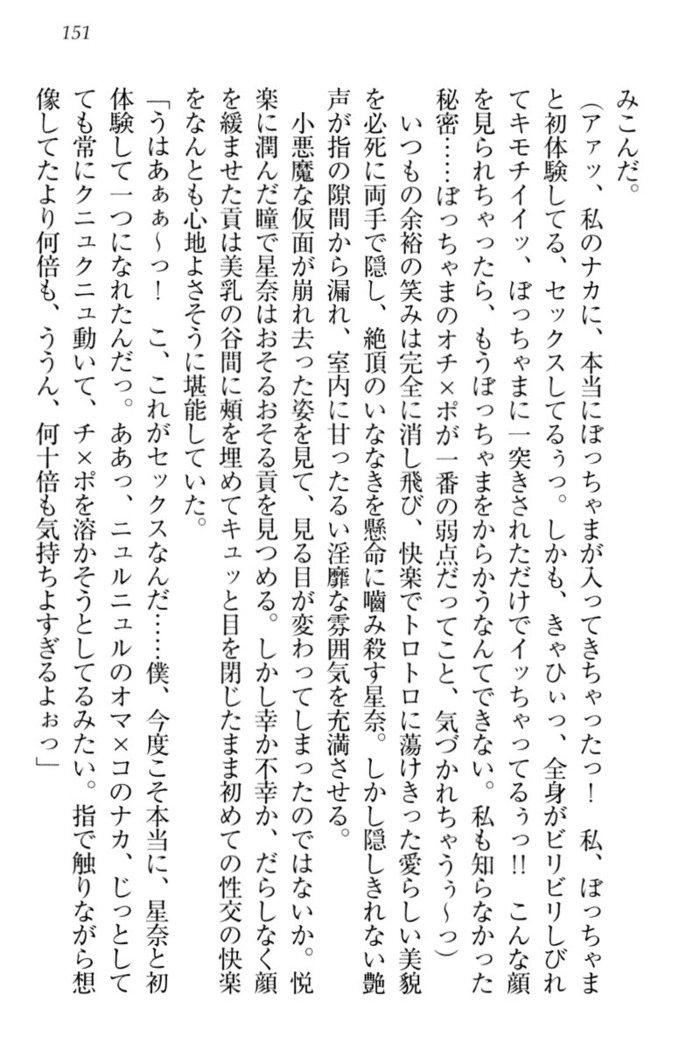 151
みこんだ。
(アァッ、私のナカに、本当にぼっちゃまが入ってきちゃったっ！　私、ぼっちゃま
と初体験してる、セックスしてるぅっ。しかも、きゃひぃっ、全身がビリビリしびれ
てキモチイイッ、ぼっちゃまに一突きされただけでイッちゃってるぅっ!!　こんな顔
を見られちゃったら、もうぼっちゃまをからかうなんてできない。私も知らなかった
秘密……ぼっちゃまのオチ×ポが一番の弱点だってこと、気づかれちゃうぅ～っ)
　いつもの余裕の笑みは完全に消し飛び、快楽でトロトロに蕩けきった愛らしい美貌
を必死に両手で隠し、絶頂のいななきを懸命に嚙み殺す星奈。しかし隠しきれない艶
声が指の隙間から漏れ、室内に甘ったるい淫靡な雰囲気を充満させる。
　小悪魔な仮面が崩れ去った姿を見て、見る目が変わってしまったのではないか。悦
楽に潤んだ瞳で星奈はおそるおそる貢を見つめる。しかし幸か不幸か、だらしなく顔
を緩ませた貢は美乳の谷間に頰を埋めてキュッと目を閉じたまま初めての性交の快楽
をなんとも心地よさそうに堪能していた。
「うはあぁぁ～っ！　こ、これがセックスなんだ……僕、今度こそ本当に、星奈と初
体験して一つになれたんだっ。ああっ、ニュルニュルのオマ×コのナカ、じっとして
ても常にクニュクニュ動いて、チ×ポを溶かそうとしてるみたい。指で触りながら想
像してたより何倍も、ううん、何十倍も気持ちよすぎるよぉっ」